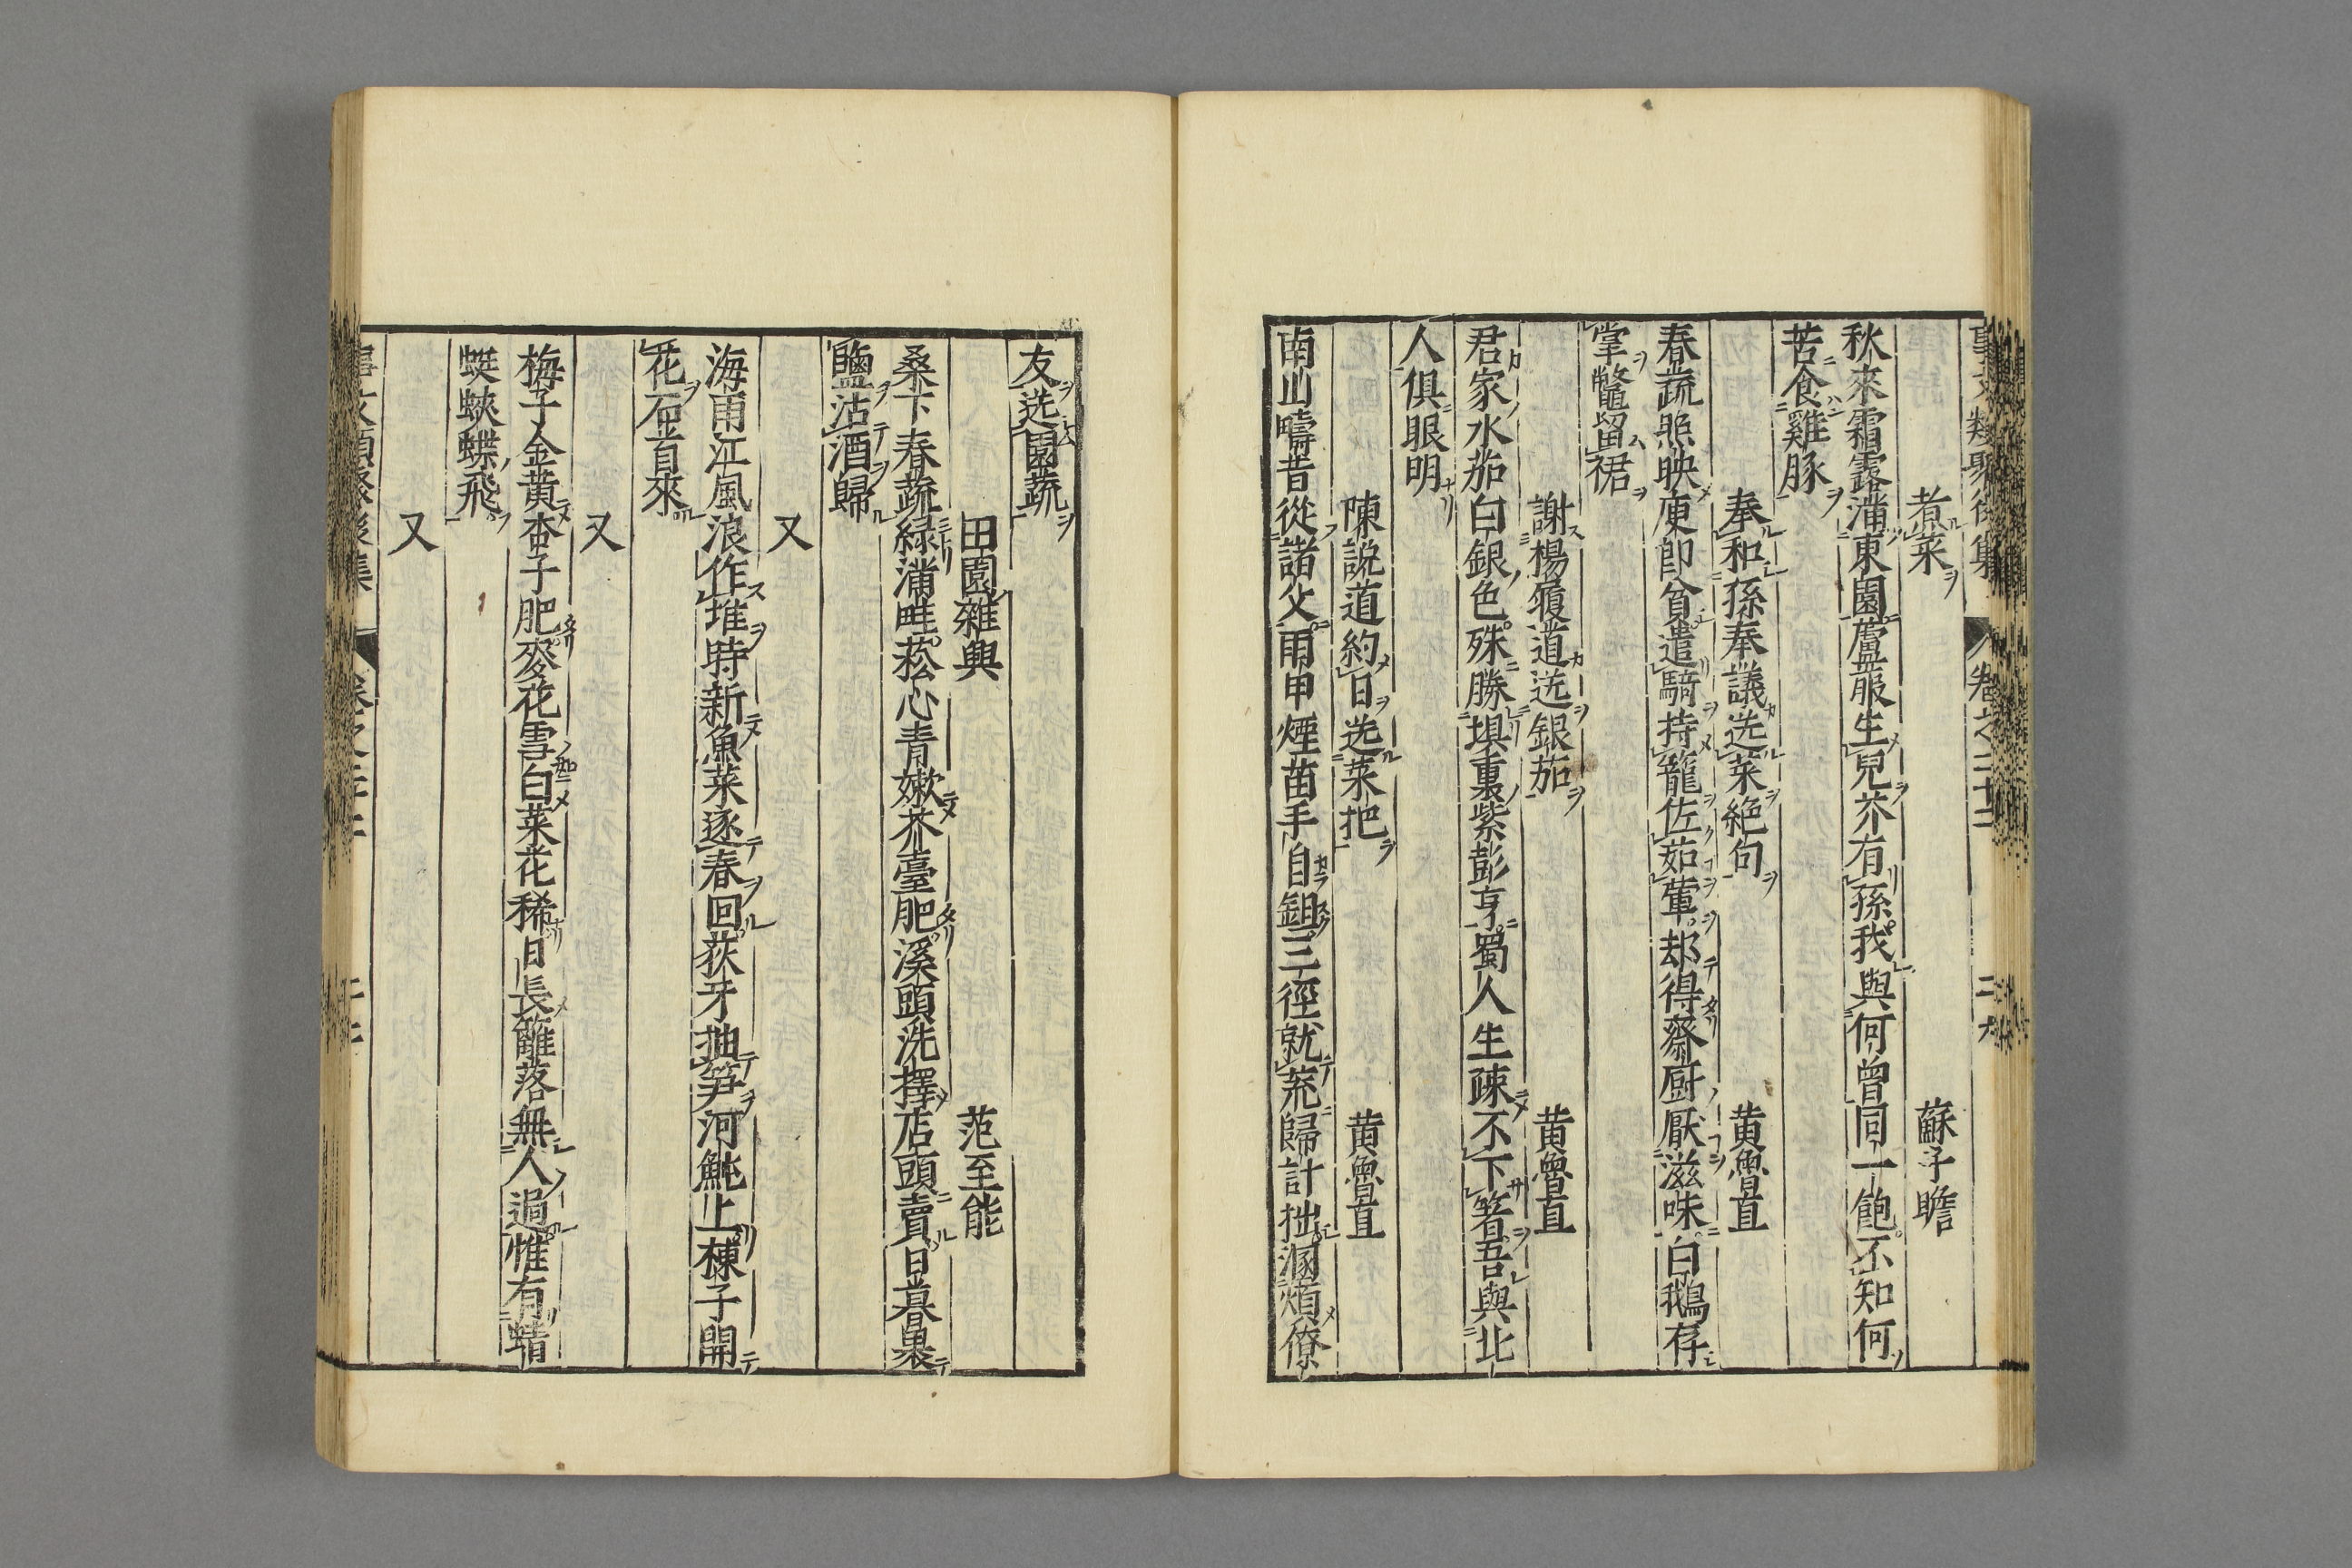 事文類聚後集 卷之二十二
煮菜 蘇子瞻
秋來霜露滿東園蘆菔生兒芥有孫我與何曾同一飽不知何
苦食雞豚
奉和孫奉議送菜絕句 黄魯直
春蔬照映庾郎貧遣騎持籠佐茹葷却得蔡厨厭滋味白鵝存
掌鼈留裙
謝楊履道送銀茄 黄魯直
君家水茄白銀色殊勝埧裏紫彭亨蜀人生疎不下箸吾與北
人俱眼明
陳說道約日送菜把 黄魯直
南山疇昔從諸父雨甲煙苗手自鉏三徑就荒歸計拙溷煩僚
友送園蔬
田園雜興 范至能
桑下春蔬緑滿畦菘心青嫰芥臺肥溪頭洗擇店頭賣日暮裹
鹽沽酒歸
又
海雨江風浪作堆時新魚菜逐春回荻牙抽笋河魨上楝子開
花石首來
又
梅子金黄杏子肥麥花雪白菜花稀日長籬落無人過惟有蜻
蜓蛺蝶飛
又